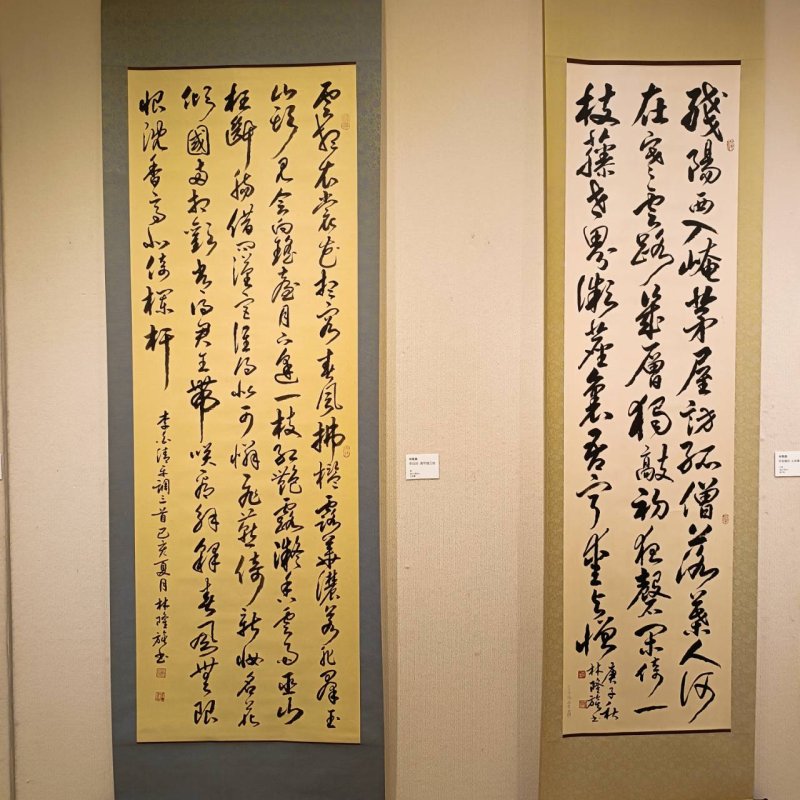 雲想衣裳花想容春風拂檻露華濃若非羣玉
山頭見會向瑤臺月下逢一枝紅艷露凝香雲雨巫山
枉斷腸借問漢宮誰得似可憐飛燕倚新妝名花
傾國兩相歡長得君王帶笑看解釋春風無限
恨沈香亭北倚欄杆
李白清平調三首己亥夏月林隆
殘陽西入崦茅屋訪孤僧落葉人何
在寒雲路幾層獨敲初夜磬閑倚一
枝藤世界微塵裏吾寧愛與憎
庚子秋
林隆